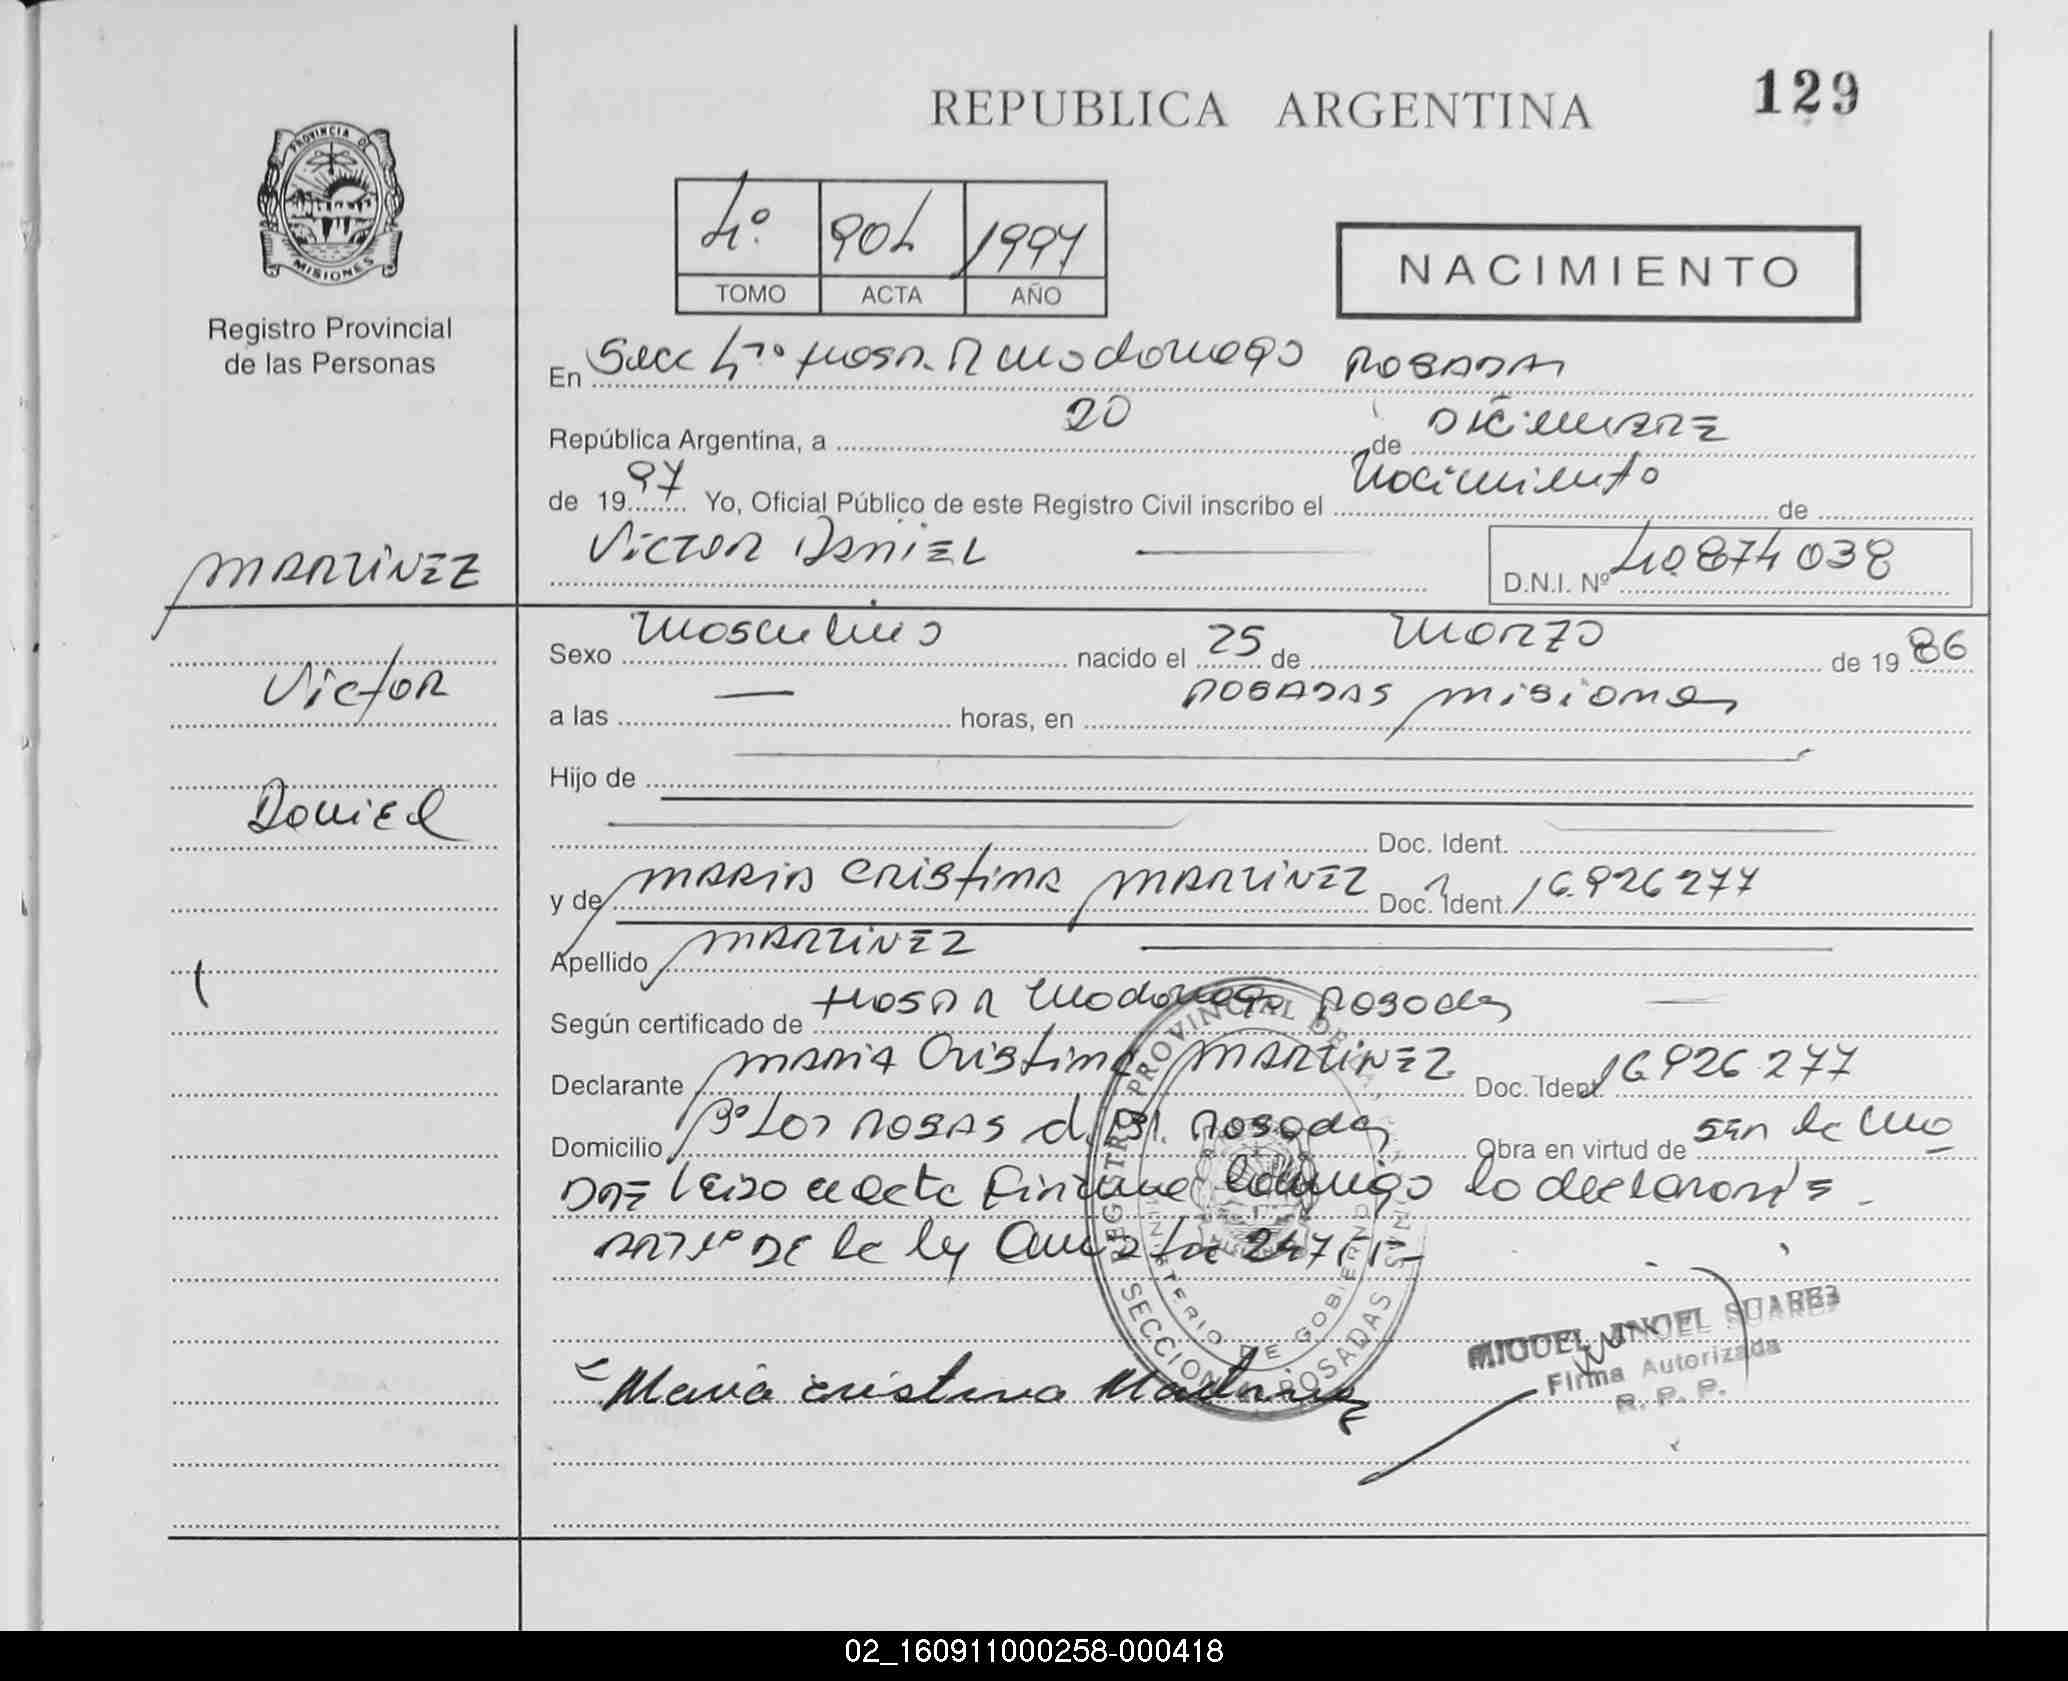 129
REPUBLICA ARGENTINA
PROVINCIA DE
MISIONES
Registro Provincial
de las Personas
4º 904 1997
TOMO ACTA AÑO
NACIMIENTO
En Secc 4ta Hosp. R Madariaga Posadas
República Argentina, a 20 de Diciembre
de 1997 Yo, Oficial Público de este Registro Civil inscribo el Nacimiento de
Victor Daniel D.N.I. Nº 40.874 038
MARTINEZ
Victor
Daniel
Sexo Masculino nacido el 25 de Marzo de 1986
a las — horas, en POSADAS Misiones
Hijo de
Doc. Ident.
y de MARIA Cristina MARTINEZ Doc. Ident. 16.926 277
Apellido MARTINEZ
Según certificado de Hosp R Madariaga Posadas
Declarante MARIA Cristina MARTINEZ Doc. Ident. 16.926 277
Domicilio Bº Las Rosas Posadas Obra en virtud de ser la ma
dre leido el acta firma conmigo la declarante
Art 1º de la ley
REGISTRO PROVINCIAL DE LAS PERSONAS
MINISTERIO DE GOBIERNO
SECCION POSADAS
Maria Cristina Martinez
MIGUEL ANGEL SUAREZ
Firma Autorizada
R. P. P.
02_160911000258-000418